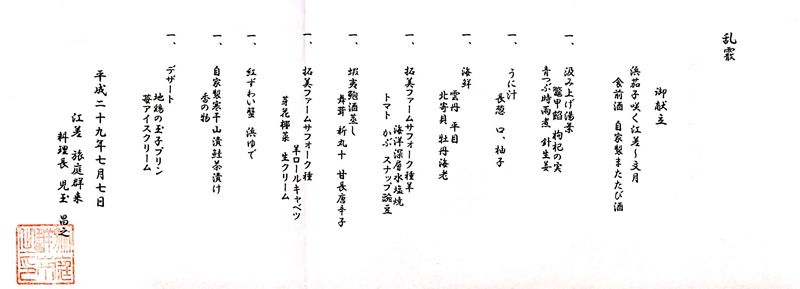 乱霰
御献立
浜茄子咲く江差～文月
食前酒 自家製またたび酒
一、汲み上げ湯葉
鼈甲餡 枸杞の実
青つぶ時雨煮 針生姜
一、うに汁
長葱 口、柚子
一、海鮮
雲丹 平目
北寄貝 牡丹海老
一、拓美ファームサフォーク種羊
海洋深層水塩焼
トマト かぶ スナップ豌豆
一、蝦夷鮑酒蒸し
舞茸 新丸十 甘長唐辛子
一、拓美ファームサフォーク種
羊ロールキャベツ
芽花椰菜 生クリーム
一、紅ずわい蟹 浜ゆで
一、自家製寒干山漬鮭茶漬け
香の物
一、デザート
地鶏の玉子プリン
苺アイスクリーム
平成二十九年七月七日
江差 旅庭群来
料理長 児玉 昌之